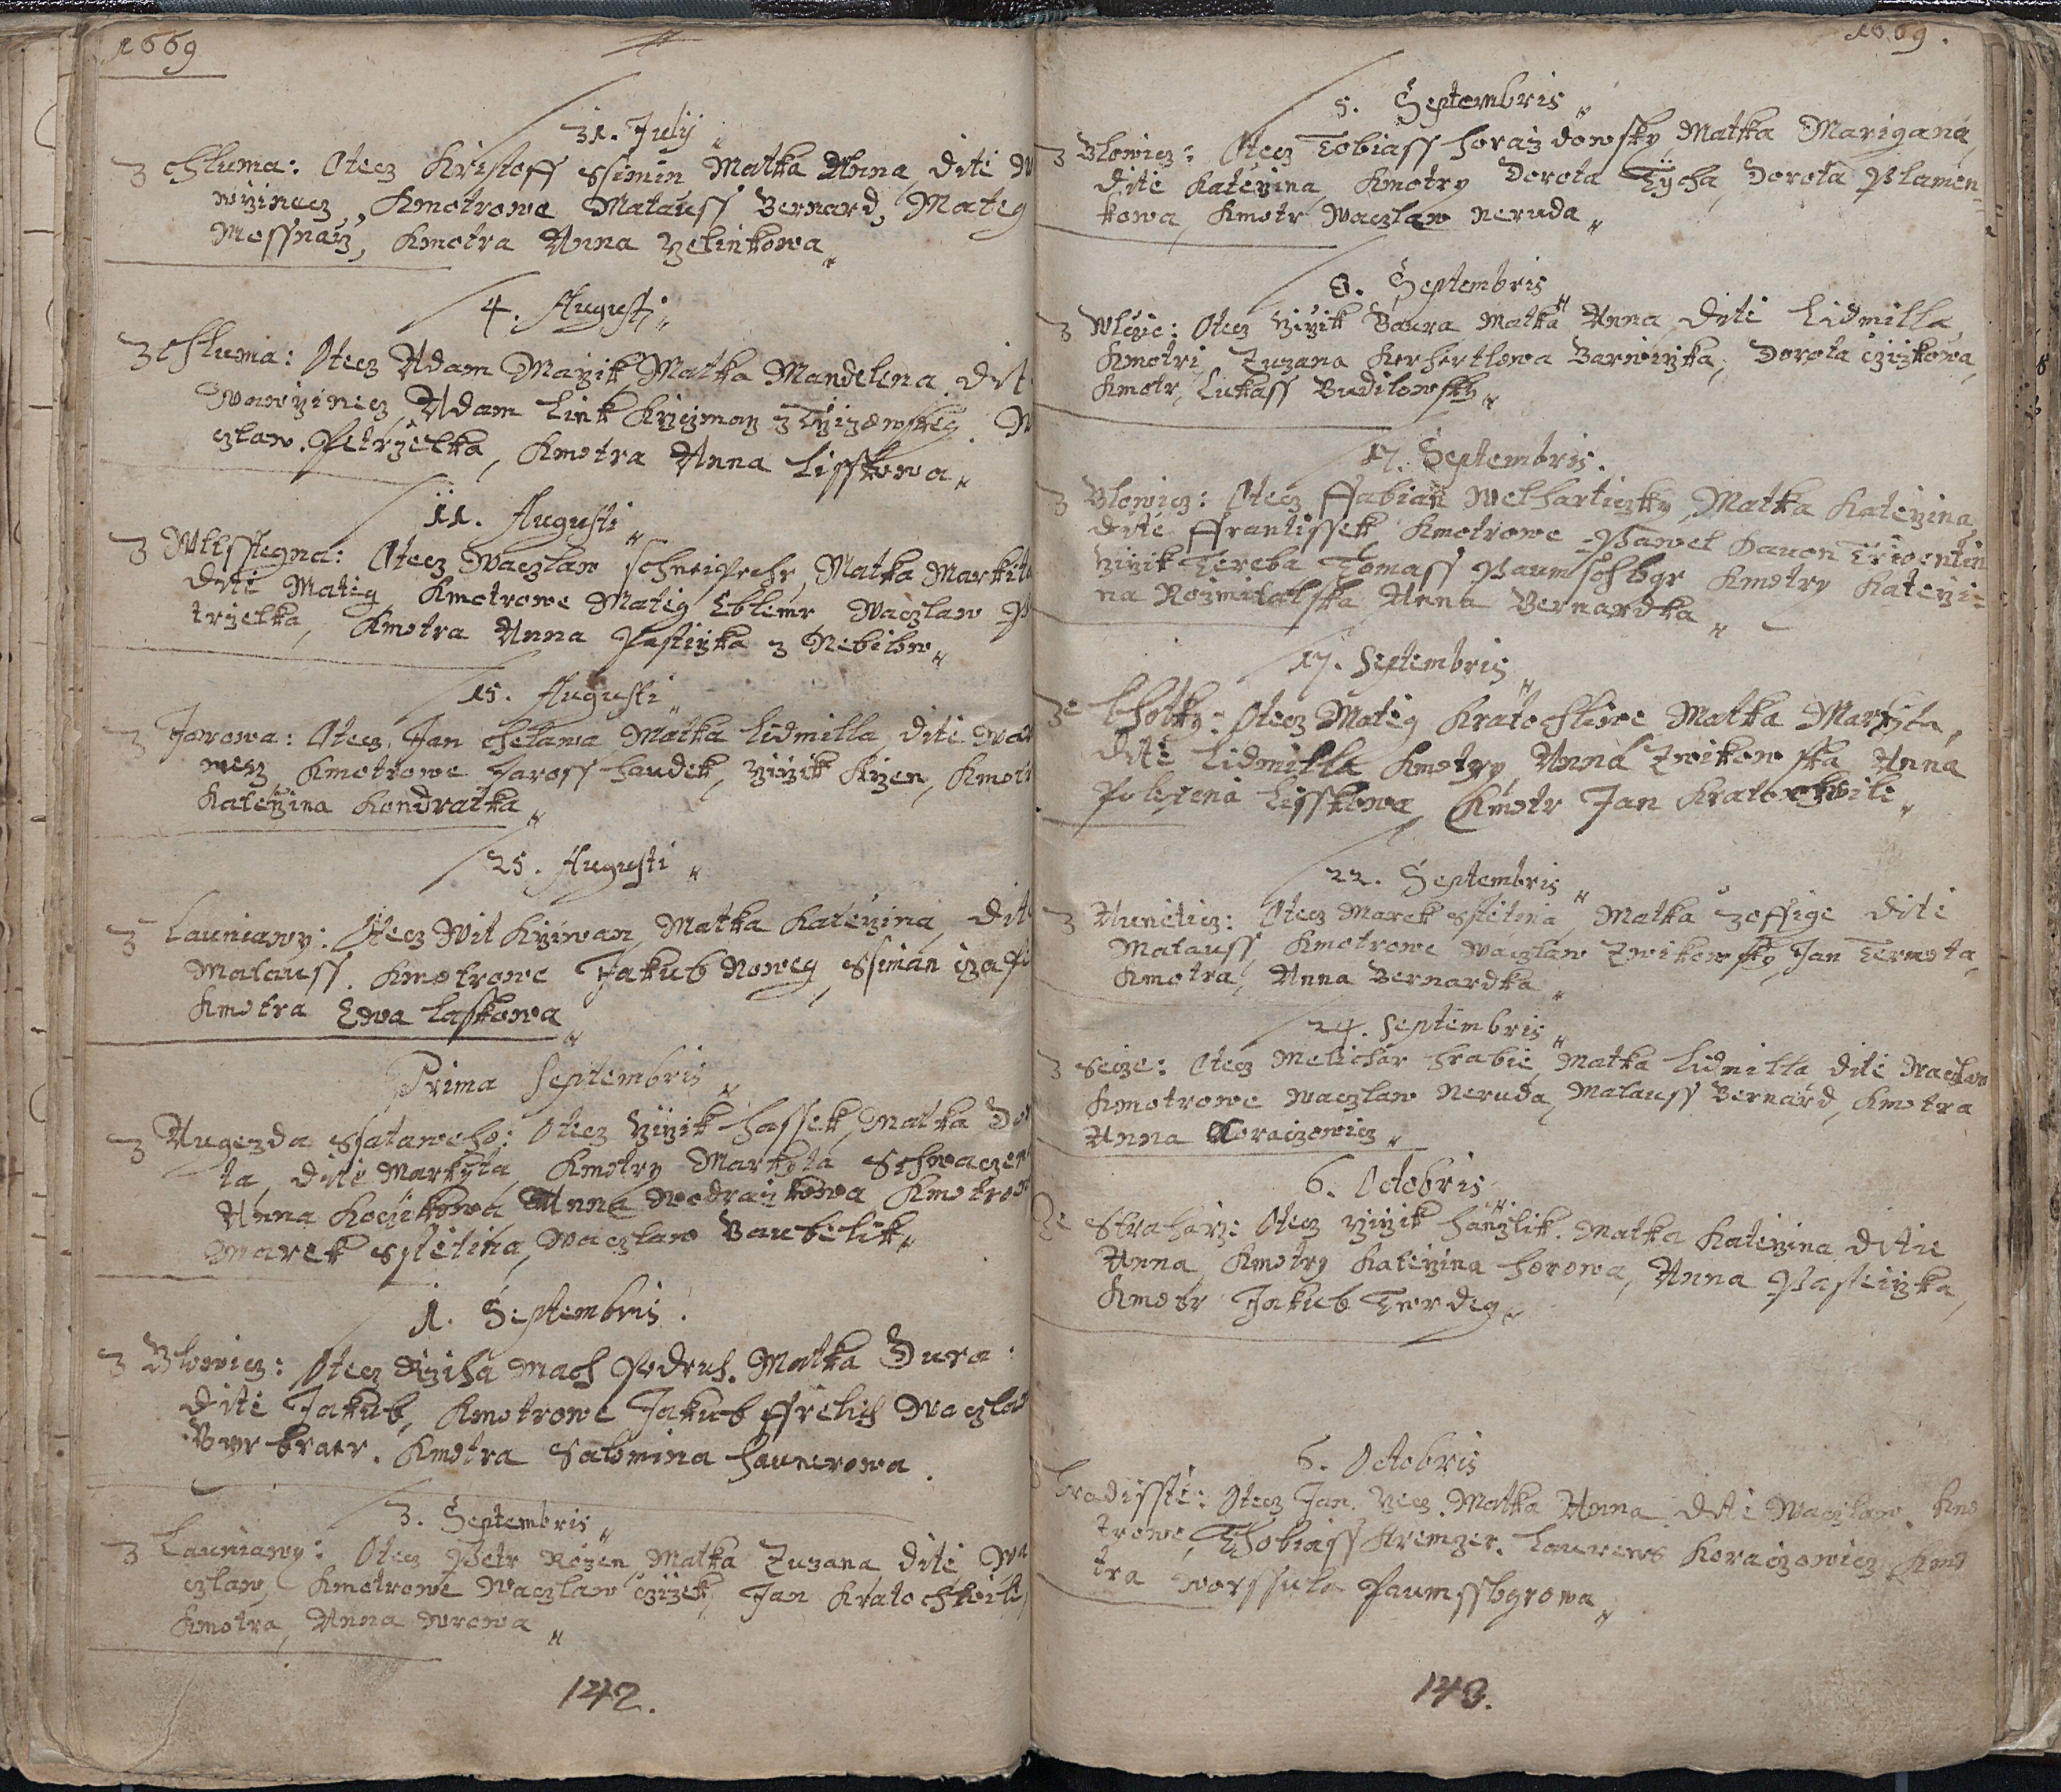 1669
31. July
z Chluma: Otecz Kristoff Ssimin Matka Anna, dite
wrzinecz, Kmotrowe Matauss Bernard, Mateg
Messnarz, Kmotra Anna Zelinkowa
4. Augusti
z Chluma: Otecz Adam Marzik, Matka Mandelena, dit
Wawrzinecz, Adam Link Krczmarz z
czlaw Petrzelka, Kmotra Anna Lisskowa
11. Augusti
z Otecz Waczlaw Matka Markita
dite Mateg Kmotrowe Mateg Eblemr Waczlaw P
trzelka, Kmotra Anna Pastirzka z Nebilow
15. Augusti
z Jarowa: Otecz Jan Chelawa Matka Lidmilla, dite
necz Kmotrowe Jaross Haudek, Girzik Krzen, Kmotr
Katerzina Kondratka
25. Augusti
z Launiowy: Otecz Wit Krziwan, Matka Katerzina, dit
Matauss. Kmotrowe Jakub Noweg, Ssiman
Kmotra Ewa Laskowa
Prima Septembris
z Augezda Ssataweho: Otecz Girzik Hassek, Matka Do
ta, dite Markyta, Kmotry Markyta
Anna Anna Wodrazkowa Kmotrow
Marek Sstetina, Waczlaw Baubelik
1. Septembris.
z Blowicz: Otecz Rziha Mach Podruh. Matka Dura:
dite Jakub, Kmotrowe Jakub Ffrelich Waczlaw
Kmotra Salomina Haunerowa.
3. Septembris
z Launiowy: Otecz Petr Rozen Matka Zuzana dite, Wa
czlaw, Kmotrowe Waczlaw Czizek, Jan Kratochwil,
Kmotra, Anna Wrowa
142.
1669.
5. Septembris
z Blowicz: Otecz Tobiass Horazdowsky, Matka Marigana,
dite Katerzina, Kmotry Dorota Tycha, Dorota Plamen=
kowa, Kmotr Waczlaw Neruda
8. Septembris
z Wlczie: Otecz Girzik Baura Matka Anna, dite Lidmilla
Kmotri Zuzana Kerhertlowa Barwirzka, Dorota Czizkowa,
Kmotr, Lukass Budilowsky
17. Septembris.
z Blowicz: Otecz Ffabian Welharticzky, Matka Katerzina,
dite Ffrantissek Kmotrowe Pawel
Girzik Tereba Tomass Kmotry Katerzi=
na Rozmitalska Anna Bernardka
17. Septembris
ze Lhotky: Otecz Mateg Kratochwile Matka Markyta,
dite Lidmilla Kmotry, Anna Zwikowska Anna
Polixena Lisskowa, Kmotr Jan Kratochwil
22. Septembris
z Huneticz: Otecz Marek Sstetina, Matka Zoffige dite
Matauss, Kmotrowe Waczlaw Zwikowsky, Jan Termota
Kmotra, Anna Bernardka
24. Septembris
z Secze: Otecz Melichar Hrabie, Matka Lidmilla dite Waczlaw
Kmotrowe Waczlaw Neruda, Matauss Bernard, Kmotra
Anna Koraczowicz
6. Octobris
Ze Otecz Girzik Hanzlik. Matka Katerzina ditie
Anna Kmotry Katerzina Horowa, Anna Pasteirzka,
Kmotr Jakub Twrdeg
6. Octobris
Hradisste: Otecz Jan Matka Anna dite Waczlaw. Kmo
trowe, Thobiass Kremzer. Laurens Koraczowicz, Kmo
tra Worssula
143.